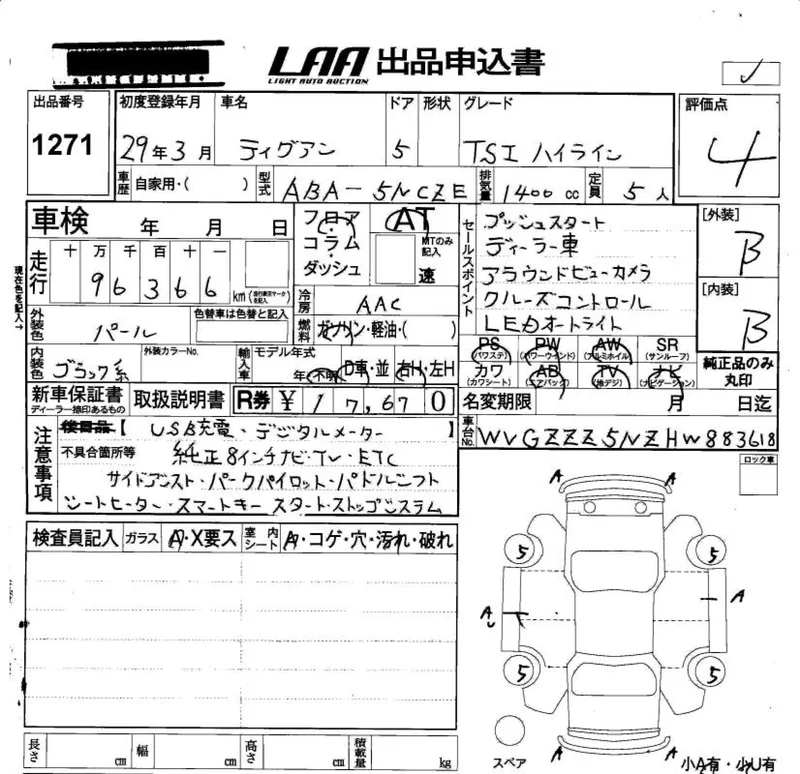 LAA 出品申込書
LIGHT AUTO AUCTION
出品番号 初度登録年月 車名 ドア 形状 グレード 評価点
1271 29年3月 ティグアン 5 TSI ハイライン 4
車歴 自家用・( ) 型式 ABA-5NCZE 排気量 1400cc 定員 5人
車検 年 月 日 フロア・コラム・ダッシュ AT MTのみ記入 速
走行 十万千百十一 96366km (走行不明車マークを記入)
現在色を記入→
外装色 パール 色替車は色替と記入
冷房 AAC
燃料 ガソリン・軽油・( )
内装色 ブラック系 外装カラーNo. 輸入車 モデル年式 年・不明 D車・並 右H・左H
セールスポイント プッシュスタート
ディーラー車
アラウンドビューカメラ
クルーズコントロール
LEDオートライト
[外装] B
[内装] B
PS (パワステ) PW (パワーウインド) AW (アルミホイル) SR (サンルーフ)
カワ (カワシート) AB (エアバック) TV (地デジ) ナビ (ナビゲーション)
純正品のみ丸印
新車保証書 ディーラー捺印あるもの 取扱説明書 R券 ¥17,670 名変期限 月 日迄
注意事項 【 USB充電・デジタルメーター 】
不具合箇所等 純正8インチナビ・TV・ETC
サイドアシスト・パークパイロット・パドルシフト
シートヒーター・スマートキー スタート・ストップシステム
車台No. WVGZZZ5NZHW883618
ロック車
検査員記入 ガラス A・X要ス 室内シート A・コゲ・穴・汚れ・破れ
A A
5 5
A A
U
5 5
A A
スペア 小A有・小U有
長さ cm 幅 cm 高さ cm 積載量 kg